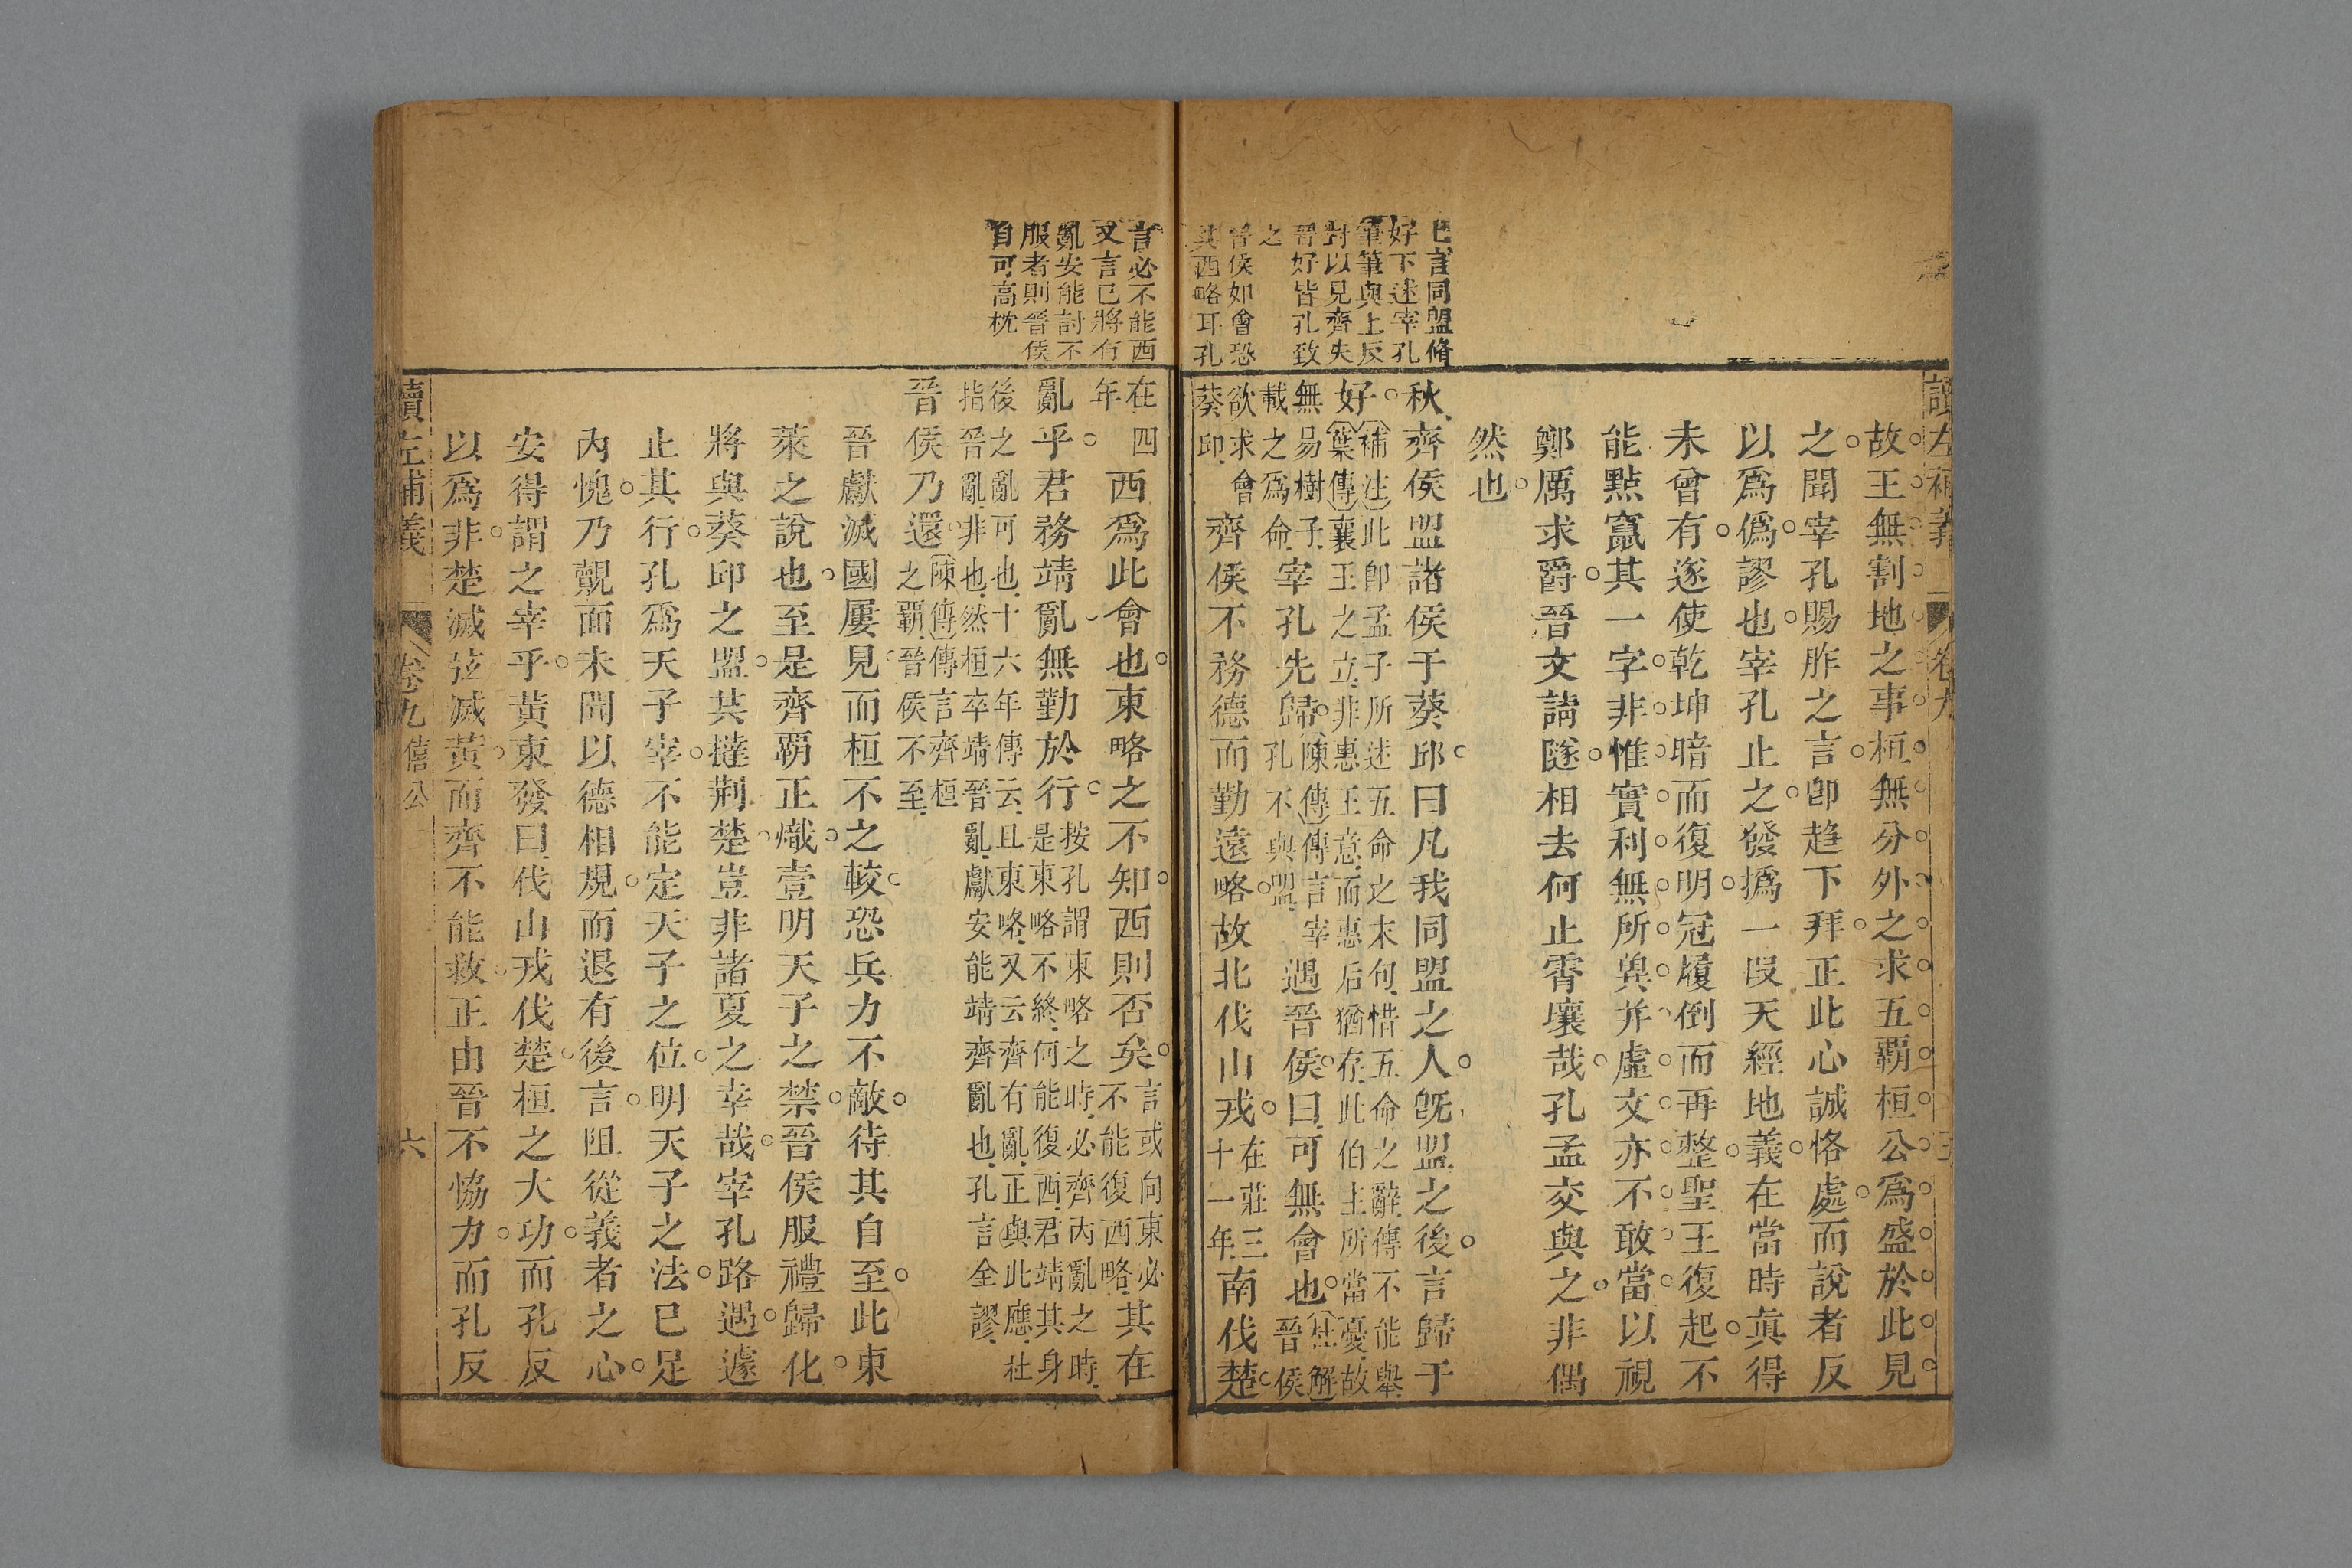 已言同盟脩
好下述宰孔
筆筆與上反
對以見齊失
晉好皆孔致
之
晉侯如會恐
其西略耳孔
讀左補義 卷九 五
故王無割地之事桓無分外之求五覇桓公爲盛於此見
之聞宰孔賜胙之言卽趋下拜正此心誠恪處而說者反
以爲僞謬也宰孔止之發撝一段天經地義在當時眞得
未曾有遂使乾坤暗而復明冠履倒而再整聖王復起不
能㸃竄其一字非惟實利無所與并虛文亦不敢當以視
鄭厲求爵晉文請隧相去何止霄壤哉孔孟交與之非偶
然也
秋齊侯盟諸侯于葵邱曰凡我同盟之人旣盟之後言歸于
好補注此卽孟子所述五命之末句惜五命之辭傳不能舉葉傳襄王之立非惠王意而惠后猶存此伯主所當憂故
無易樹子載之爲命宰孔先歸陳傳傳言宰孔不與盟遇晉侯曰可無會也杜解晉侯
欲求會葵邱齊侯不務德而勤遠略故北伐山戎在莊三十一年南伐楚
言必不能西
又言已將有
亂安能討不
服者則晉侯
自可高枕
在四年西爲此會也東略之不知西則否矣言或向東必不能復西略其在
亂乎君務靖亂無勤於行按孔謂東略之時必齊內亂之時是東略不終何能復西君靖其身
後之亂可也十六年傳云且東略又云齊有亂正與此應杜指晉亂非也然桓卒靖晉亂獻安能靖齊亂也孔言全謬
晉侯乃還陳傳傳言齊桓之覇晉侯不至
晉獻滅國屢見而桓不之較恐兵力不敵待其自至此東
萊之說也至是齊覇正熾壹明天子之禁晉侯服禮歸化
將與葵邱之盟其撻荆楚豈非諸夏之幸哉宰孔路遇遽
止其行孔爲天子宰不能定天子之位明天子之法已足
內愧乃覿面未聞以德相規而退有後言阻從義者之心
安得謂之宰乎黃東發曰伐山戎伐楚桓之大功而孔反
以爲非楚滅弦滅黃而齊不能救正由晉不恊力而孔反
讀左補義 卷九 僖公 六